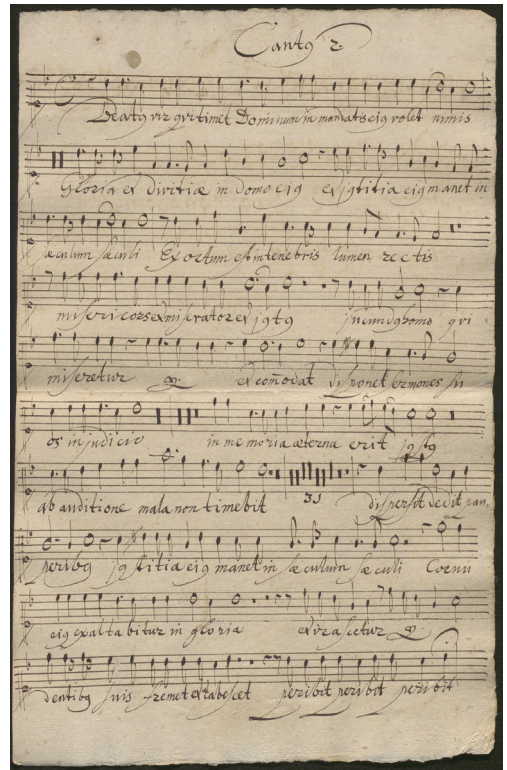 Cantꝰ 2.
Beatꝰ vir qvi timet Dominum in mandatis eiꝰ volet nimis
Gloria et divitiæ in domo eiꝰ et jꝰtitia eiꝰ manet in
sæculum sæculi Exortum est in tenebris lumen rectis
misericors et miserator et jꝰtꝰ jucundꝰ homo qvi
miseretur et com̃odat disponet sermones su
os in judicio in memoria æterna erit jꝰtꝰ
ab auditione mala non timebit 31 dispersit dedit pau
peribꝰ jꝰtitia eiꝰ manet in sæculum sæculi Cornu
eiꝰ exaltabitur in gloria et irascetur
dentibꝰ suis fremet et tabescet peribit peribit peribit